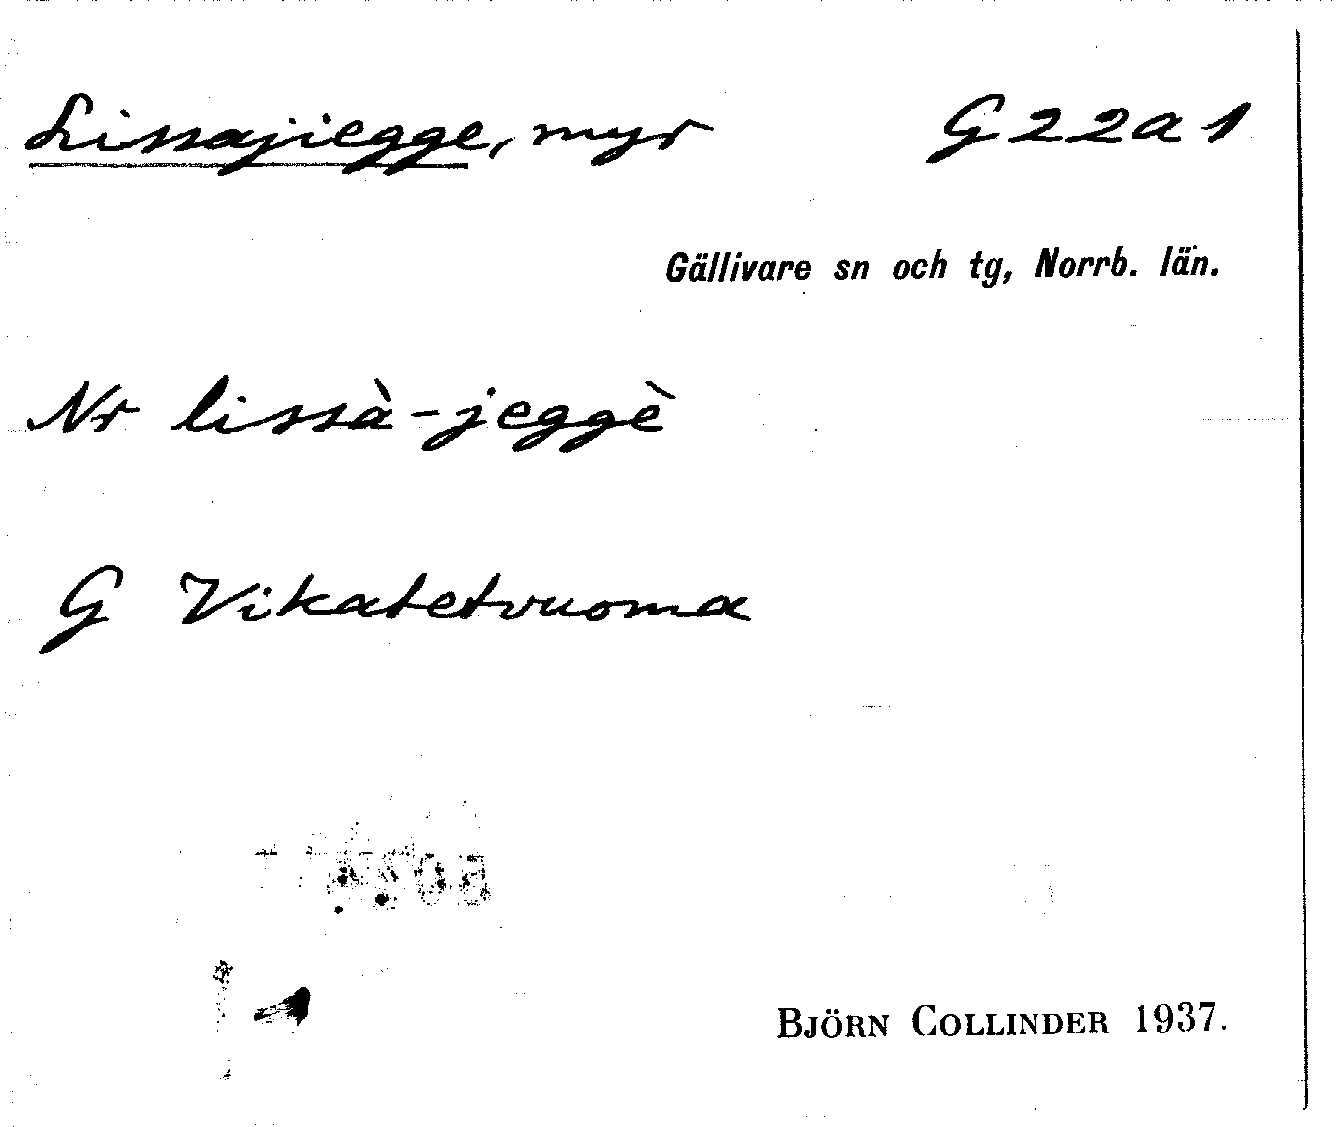 Lissajiegge, myr G22a1
Gällivare sn och tg, Norrb. län.
Nr lissà-jeggè
G Vikatetvuoma
BJÖRN COLLINDER 1937.